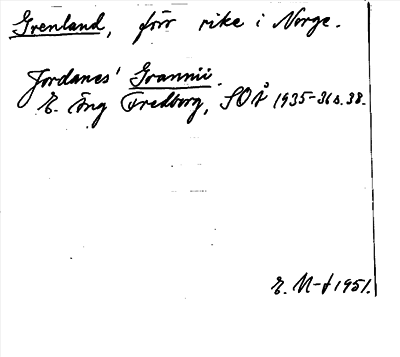 Grenland, förr rike i Norge.
Jordanes' Grannii.
E. Öng Fredborg, SOÅ 1935-36 s. 38.
E. N-d 1951.